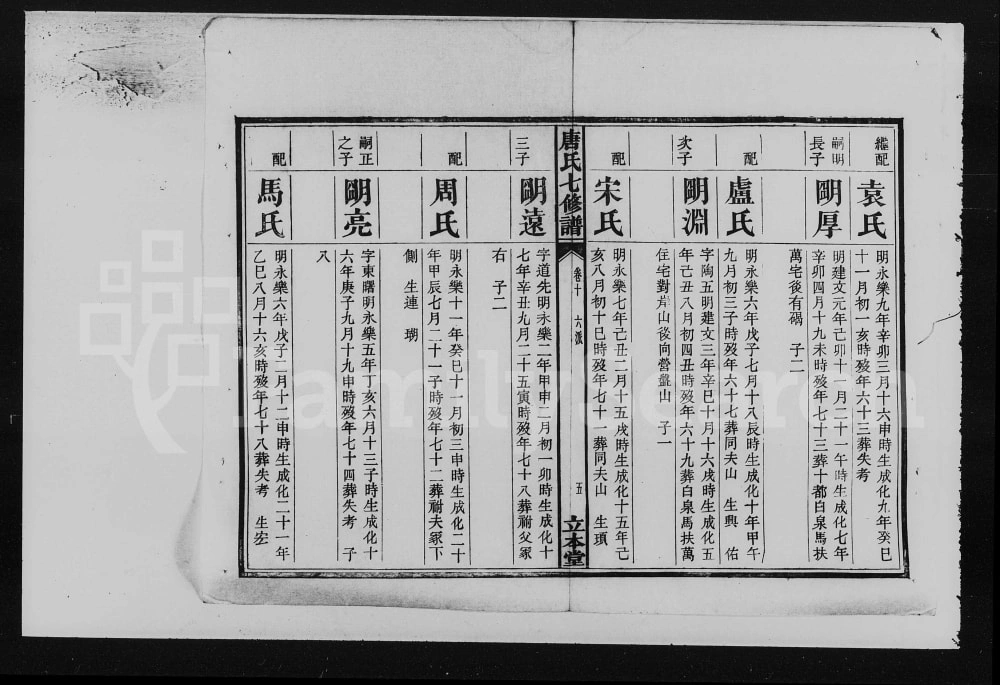 繼配
袁氏
明永樂九年辛卯三月十六申時生成化九年癸巳
十一月初一亥時歿年六十三葬失考
嗣明
長子
明厚
明建文元年己卯十一月二十一午時生成化七年
辛卯四月十九未時歿年七十三葬十都白泉馬扶
萬宅後有碣 子二
配
盧氏
明永樂六年戊子七月十八辰時生成化十年甲午
九月初三子時歿年六十七葬同夫山 生興 佑
次子
明淵
字陶五明建文三年辛巳十月十六戌時生成化五
年己丑八月初四丑時歿年六十九葬白泉馬扶萬
住宅對岸山後向營盤山 子一
配
宋氏
明永樂七年己丑二月十五戌時生成化十五年己
亥八月初十巳時歿年七十一葬同夫山 生頊
唐氏七修譜
卷十 六派
五
立本堂
三子
明遠
字道先明永樂二年甲申二月初一卯時生成化十
七年辛丑九月二十五寅時歿年七十八葬祔父冢
右 子二
配
周氏
明永樂十一年癸巳十一月初三申時生成化二十
年甲辰七月二十一子時歿年七十二葬祔夫冢下
側 生連 瑚
嗣正
之子
明亮
字東曙明永樂五年丁亥六月十三子時生成化十
六年庚子九月十九申時歿年七十四葬失考 子
八
配
馬氏
明永樂六年戊子二月十二申時生成化二十一年
乙巳八月十六亥時歿年七十八葬失考 生宏
FamilySearch